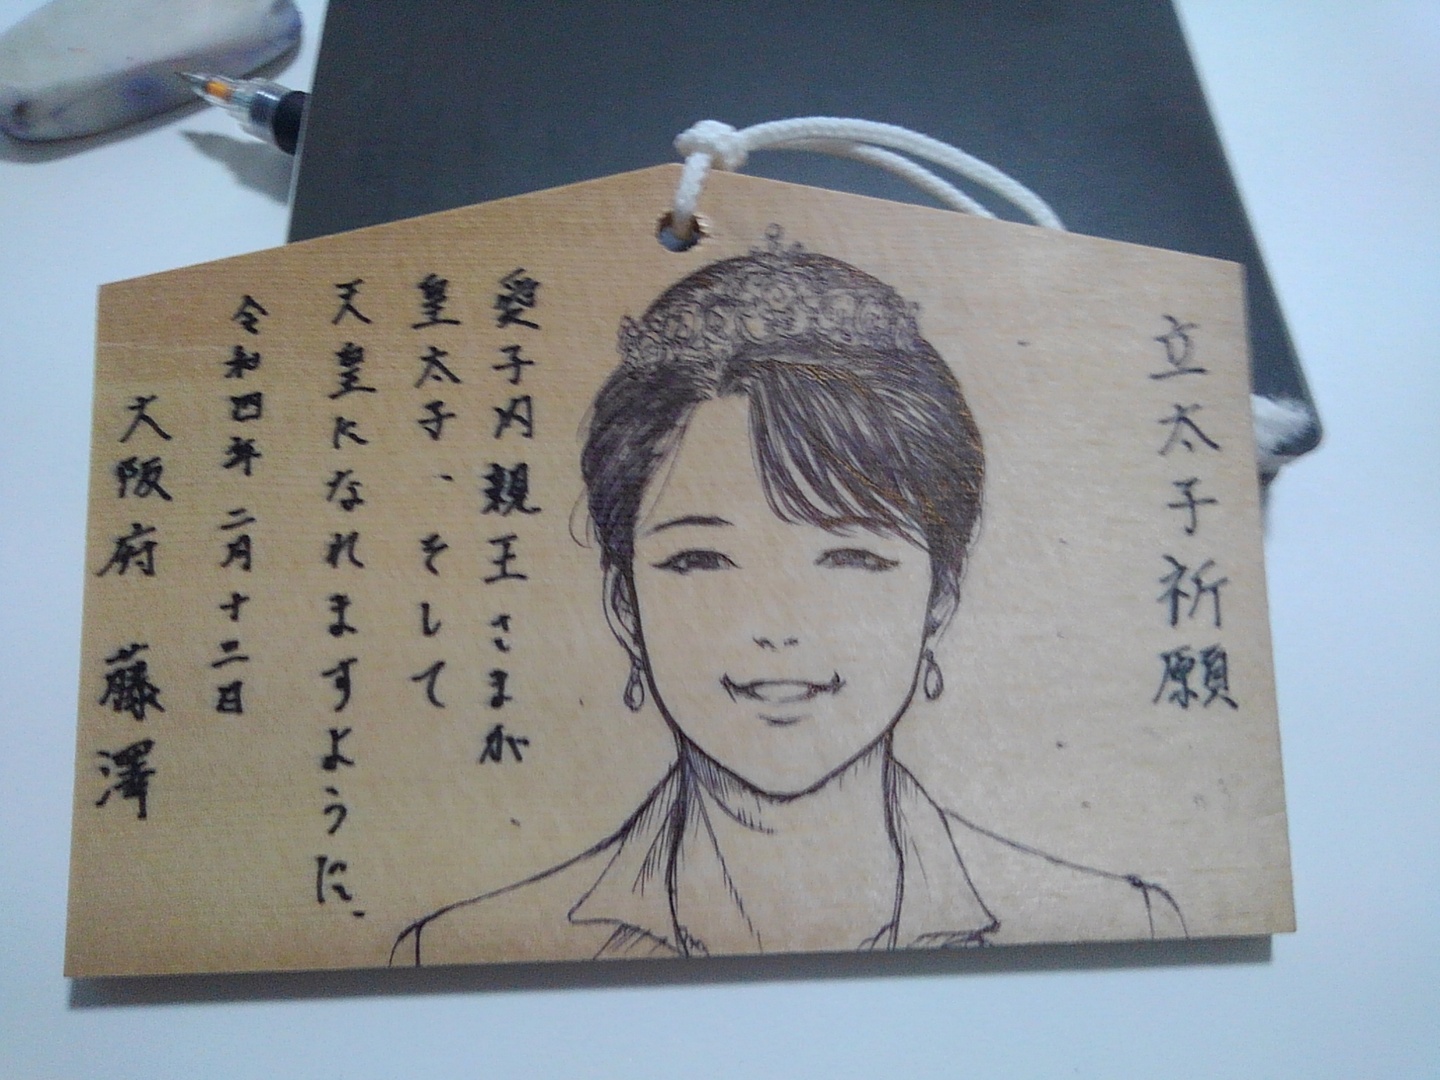 立太子祈願
愛子内親王さまが
皇太子、そして
天皇になれますように、
令和四年 二月十二日
大阪府 藤澤